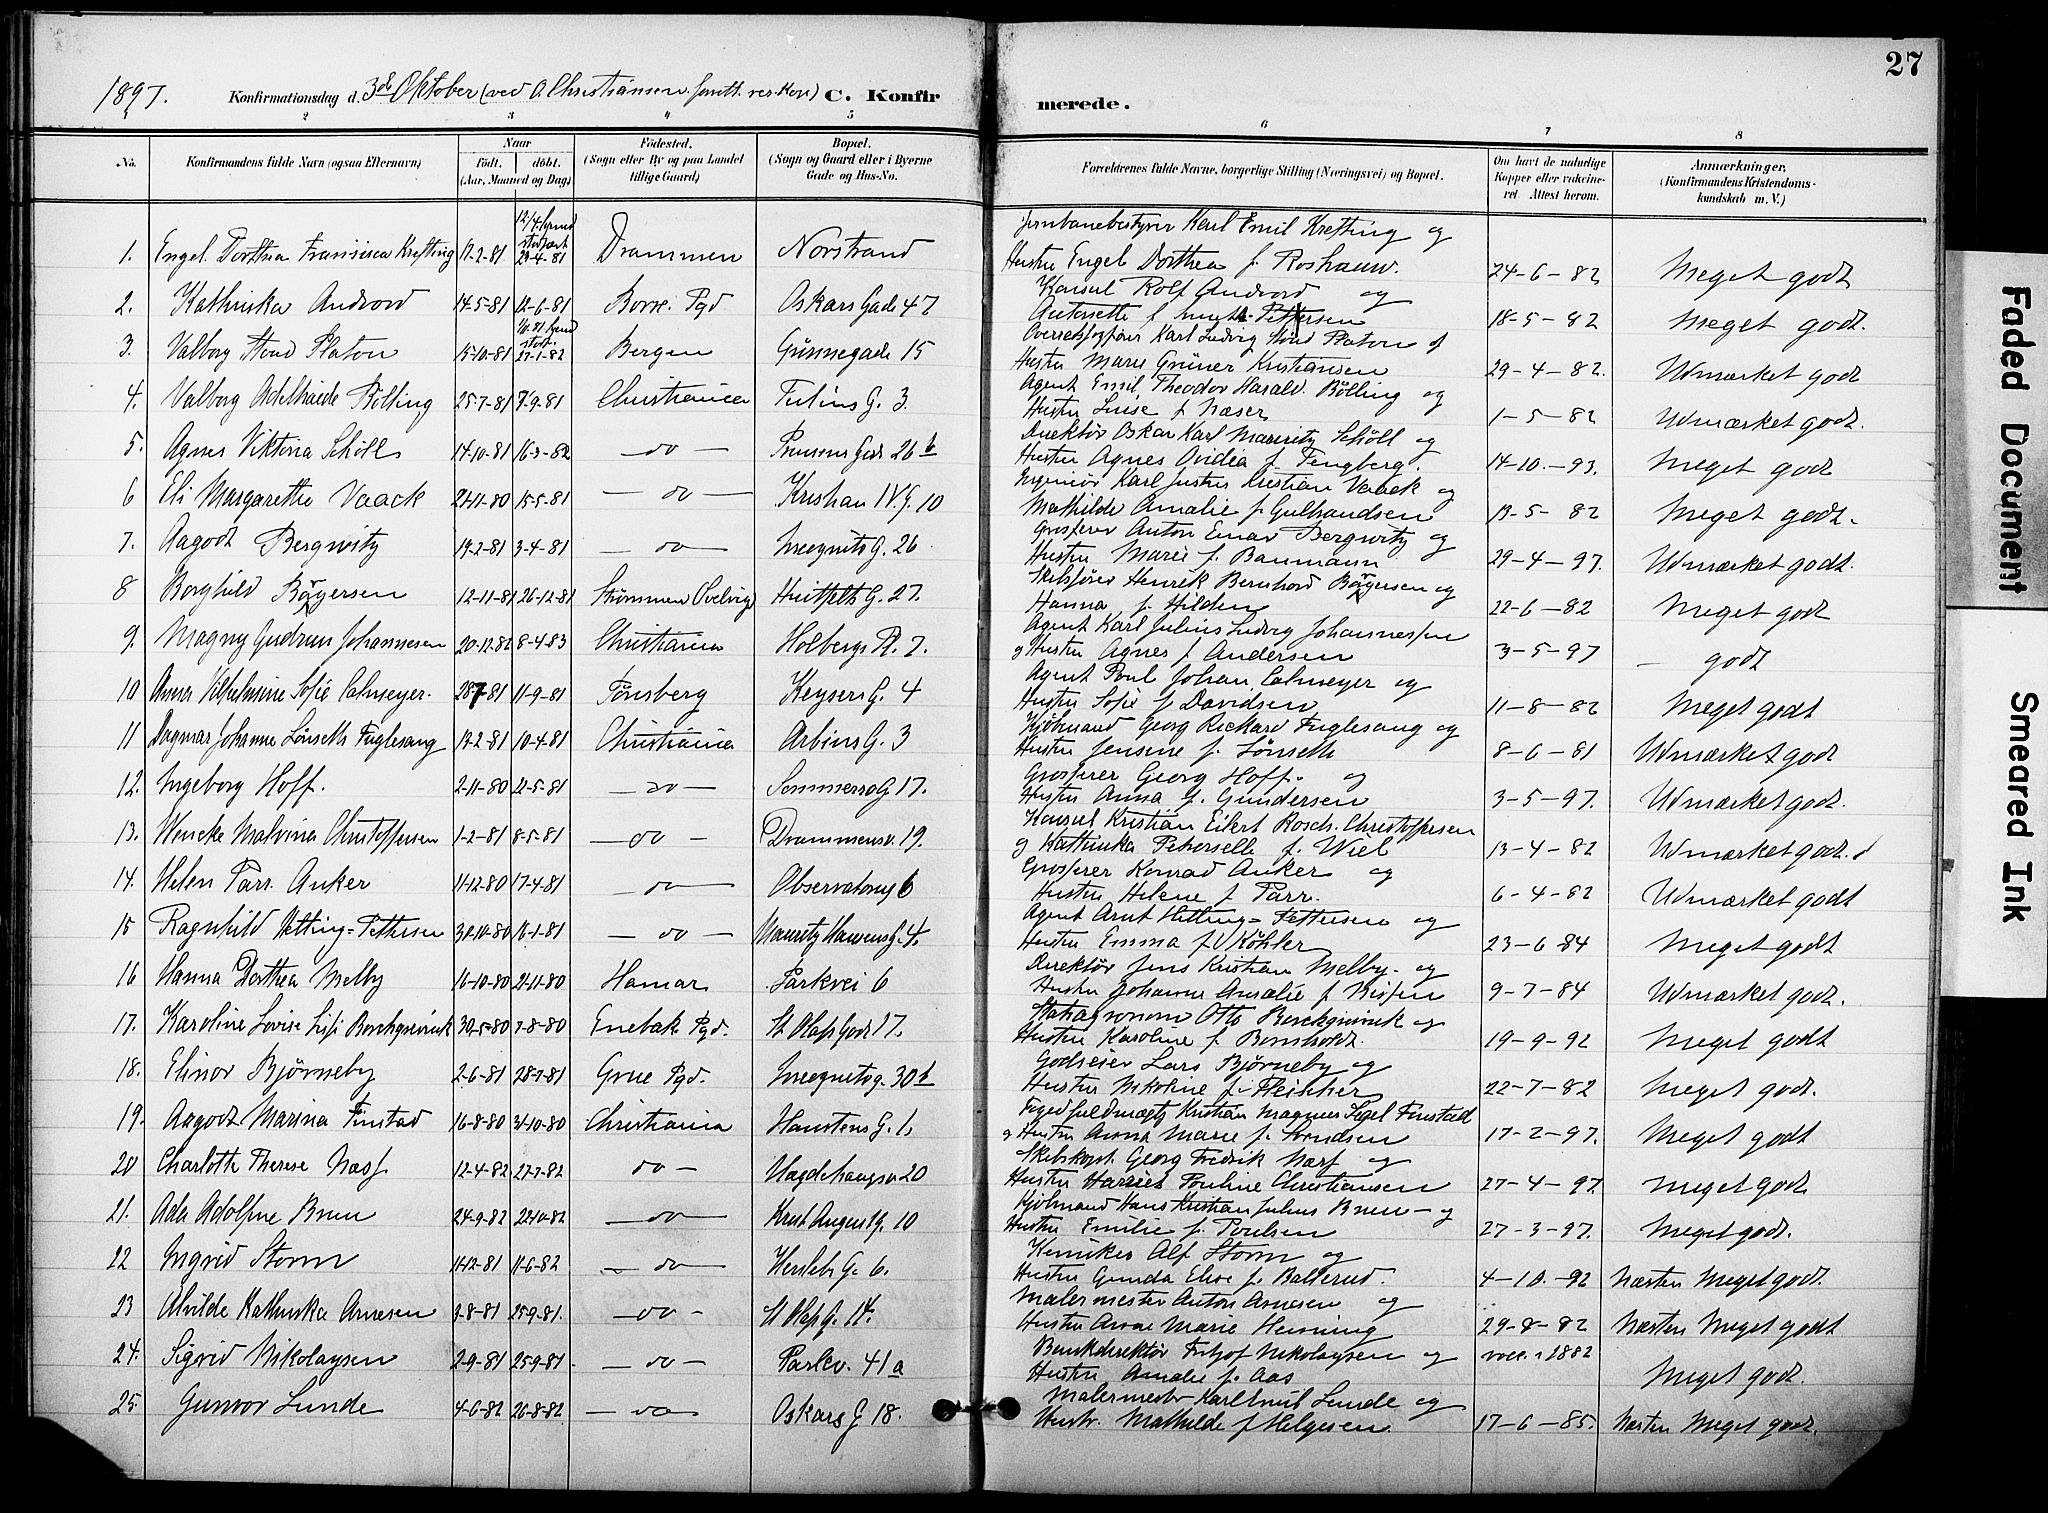 27
1897. Konfirmationsdag d. 3de Oktober (ved O. Christiansen res. kap.) C. Konfirmerede.
1 2 3 4 5 6 7 8
No. Konfirmandens fulde Navn (ogsaa Efternavn) Naar født. døbt. (Aar, Maaned og Dag) Fødested. (Sogn eller By og paa Landet tillige Gaard) Bopæl. (Sogn og Gaard eller i Byerne Gade og Hus-No. Forældrenes fulde Navne, borgerlige Stilling (Næringsvei) og Bopæl. Om havt de naturlige Kopper eller vakcineret. Attest herom. Anmærkninger. (Konfirmandens Kristendomskundskab m. V.)
1. Engel Dorthea Fransisca Krefting 17-2-81 12/4 hjemd stadfæst 29-4-81 Drammen Norstrand Jernbanebestyrer Karl Emil Krefting og
Hustru Engel Dorthea f. Roshauw. 24-6-82 Meget godt
2. Kathinka Andvord 14-5-81 12-6-81 Borre Pgd Oskars Gade 47 Konsul Rolf Andvord og
Antonette f. Pettersen 18-5-82 Meget godt.
3. Valborg Stoud Platon 15-10-81 hjemd stat. 27-1-82 Bergen Günnegade 15 Overretssagfører Karl Ludvig Stoud Platon og
Hustru Marie Grüner Kristiansen 29-4-82. Udmærket godt
4. Valborg Adelheide Bölling 25-7-81 7-9-81 Christiania Tulins G. 3. Agent Emil Theodor Harald Bölling og
Hustru Luise f. Næser 1-5-82 Udmærket godt.
5. Agnes Viktoria Schöll 14-10-81 16-3-82 do Gade 26 b Direktör Oskar Karl Mauritz Schöll og
Hustru Agnes Ovidia f. Fengberg. 14-10-93. Meget godt
6 Eli Margarethe Vaack 21-11-80 15-5-81 do Kristian IV G. 10 Ingeniör Karl Justus Kristian Vaack og
Mathilde Amalie f. Gulbrandsen 13-5-82 Meget godt.
7. Aagodt Bergwitz 19-2-81 3-4-81 do Incognito G. 26 Grosserer Anton Einar Bergwitz og
Hustru Marie f. Baumann 29-4-97. Udmærket godt.
8 Borghild Bögersen 12-11-81 26-12-81 Strømmen Huitfelts G. 27. Skibsfører Henrik Bernhard Bögersen og
Hanna f. Hilden 22-6-82 Meget godt
9. Magny Gudrun Johannesen 20-12-82 8-4-83 Christiania Holbergs Pl. 7. Agent Karl Julius Ludvig Johannessen
og Hustru Agnes f. Andersen 3-5-97 - godt
10 Anna Vilhelmine Sofie Calmeyer 28-7-81 11-9-81 Tönsberg Keysers G. 4 Agent Poul Johan Calmeyer og
Hustru Sofie f. Davidsen 11-8-82 Meget godt
11 Dagmar Johanne Lönseth Fuglesang 19-2-81 10-4-81 Christiania Arbins G. 3 Kjöbmand Georg Rickard Fuglesang og
Hustru Jensine f. Lönseth 8-6-81 Udmærket godt
12. Ingeborg Hoff. 2-11-80 22-5-81 do Sommerro G 17. Grosserer Georg Hoff. og
Hustru Anna f. Gundersen 3-5-97. Udmærket godt.
13. Wencke Malvina Christoffersen 1-2-81 8-5-81 do Drammensv. 19. Konsul Kristian Eilert Rosch Christoffersen
og Kathinka Petronelle f. Wiel 13-4-82 Udmærket godt.
14. Helen Parr Anker 11-12-80 17-4-81 do Observatorieg 6 Grosserer Konrad Anker og
Hustru Helene f. Parr. 6-4-82 Udmærket godt
15 Ragnhild Hetting-Pettersen 30-10-80 15-1-81 do Mauritz Hansens G. 4. Agent Arnt Hetting-Pettersen og
Hustru Emma f. Köhler 23-6-84 Meget godt
16 Hanna Dorthea Melby 16-10-80 21-11-80 Hamar Parkvei 6 Direktör Jens Kristian Melby og
Hustru Johanne Amalie f. 9-7-84 Udmærket godt.
17. Karoline Lovise Borchgrevink 30-5-80 7-8-80 Enebak Pgd. St Olafs Gade 17. Statsagronom Otto Borchgrevink og
Hustru Karoline f. Bernholdt. 19-9-92 Meget godt
18. Elinor Bjørneby 2-6-81 28-7-81 Grue Pgd. Incognitog. 30 b Godseier Lars Bjørneby og
Hustru Nikoline f. Fleischer 22-7-82 Meget godt.
19. Aagodt Marina Finstad 16-8-80 31-10-80 Christiania Hanstens G. 1. Fogedfuldmægtig Kristian Magnus Segel Finstad
og Hustru Anna Marie f. Svendsen 17-2-97. Meget godt
20 Charlotte Therese Næss 12-4-82 27-7-82 do Hægdehaugsv 20 Skibskapt. Georg Fredrik Næss og
Hustru Harriet Pouline Christiansen 27-4-97. Meget godt
21. Ada Adolfine Bruu 24-9-82 22-10-82 do Krist. August G. 10 Kjöbmand Hans Kristian Julius Bruu og
Hustru Emilie f. Poulsen 27-3-97. Meget godt.
22 Ingrid Storm 11-12-81 11-6-82 do Herslebs G. 6. Kemiker Alf Storm og
Hustru Gunda Elise f. Ballerud. 4-10-92 Næsten Meget godt.
23 Alvilde Kathinka Arnesen 3-8-81 25-9-81. do St Olafs G. 14. Malermester Anton Arnesen og
Hustru Anne Marie Henning 29-8-82 Næsten Meget godt
24. Sigrid Nikolaysen 2-9-81 25-9-81 do Parkv. 41 a Bankdirektör Fritjof Nikolaysen og vacc. i 1882
Hustru Amalie f. Aas Meget godt.
25. Gunvor Lunde 4-6-82 20-8-82 do Oskars G 18. Malermester Karl Knut Lunde og
Hustr. Mathilde f. Helgesen. 17-6-85. Næsten Meget godt.
Faded Document
Smeared Ink